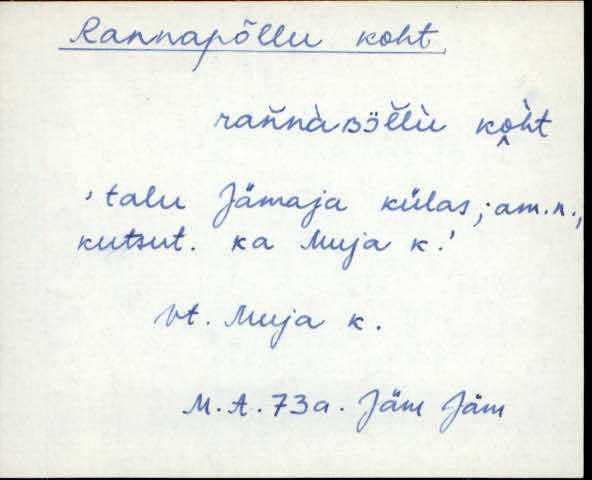 Rannapõllu koht
rañnàʙɜ̈l̆lù kòht
'talu Jämaja külas; am.n.,
kutsut. ka Muja k.'
Vt. Muja k.
M.A. 73a. Jäm Jäm